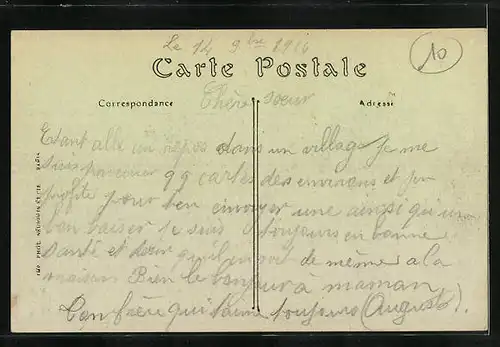 Le 14 9bre 1916
10
Carte Postale
Correspondance
Adresse
Chère soeur
Etant allé au repos dans un village je me
suis procurer qq cartes des environs et j'en
profite pour t'en envoyer une ainsi qu'un
bon baiser je suis toujours en bonne
santé et désir qu'il en soit de même a la
maison Bien le bonjour à maman
Ton frère qui t'aime toujours (Auguste).
IMP. PHOT. NEURDEIN ET CIE. PARIS